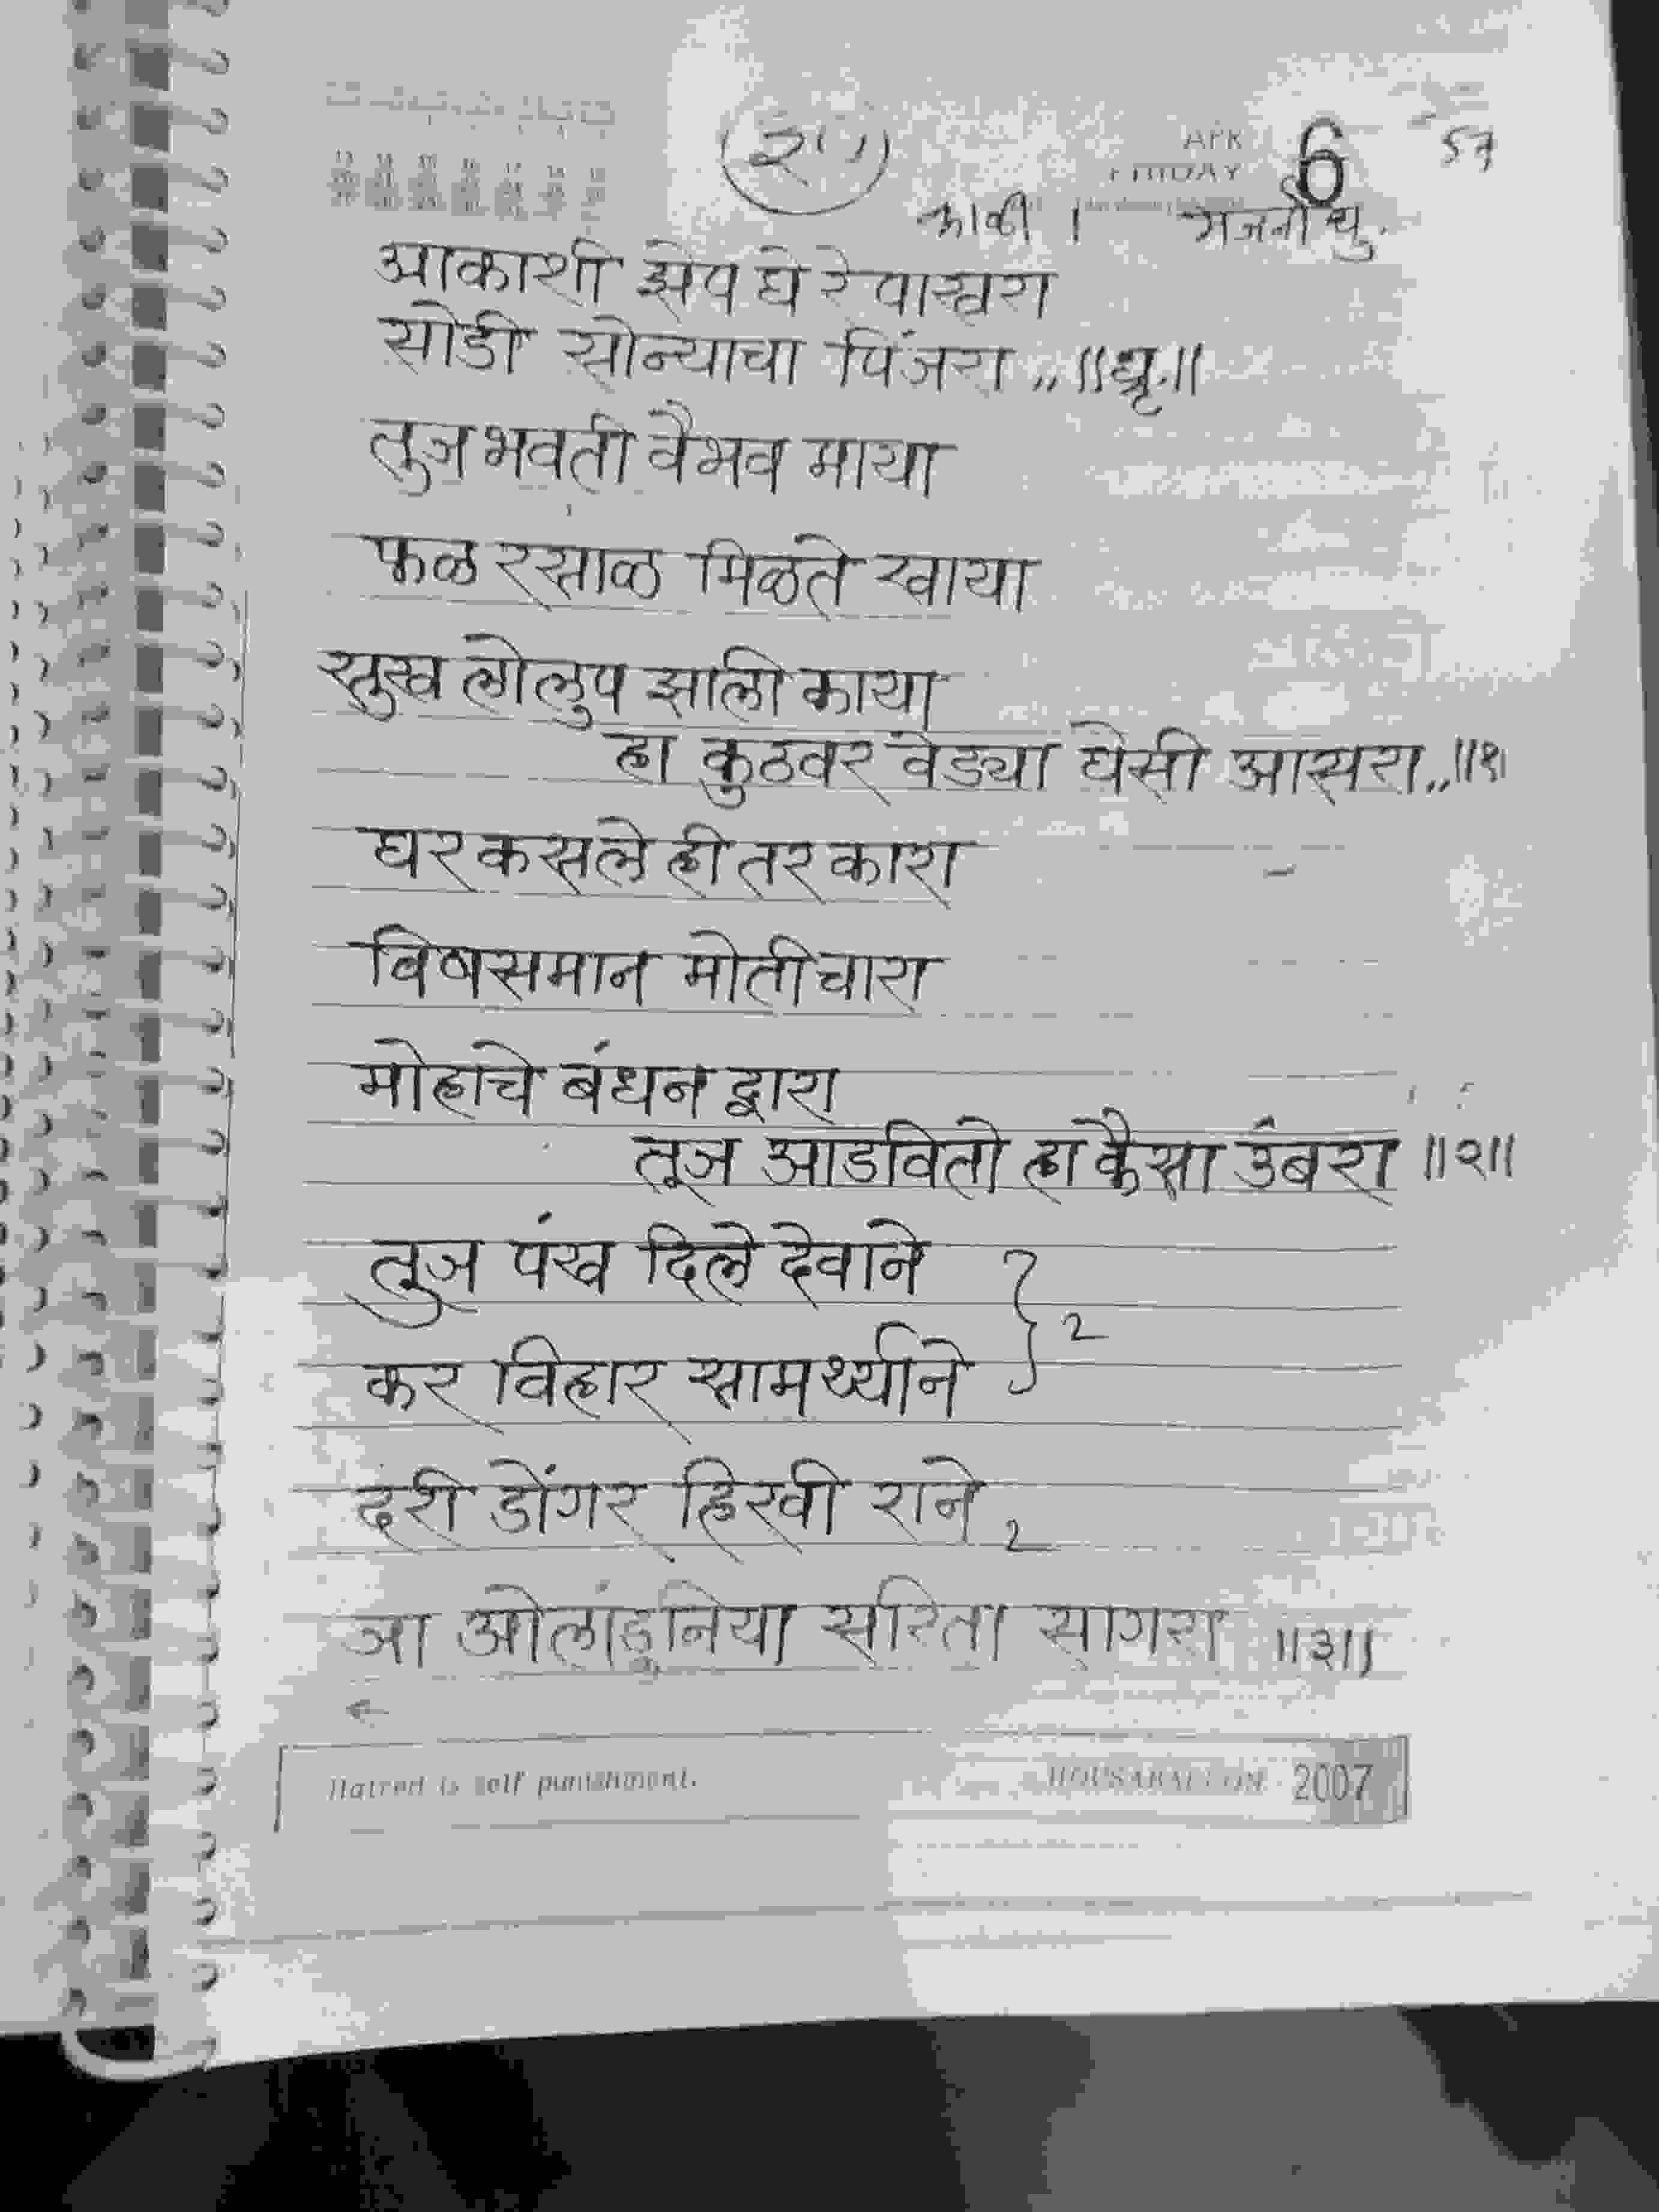 APR
FRIDAY 6 57
काळी 1 भजनी धु.
आकाशी झेप घे रे पाखरा
सोडी सोन्याचा पिंजरा ,, ||धृ.||
तुज भवती वैभव माया
फळ रसाळ मिळते खाया
सुख लोलुप झाली काया
हा कुठवर वेड्या घेसी आसरा,, ||१|
घर कसले ही तर कारा
विषसमान मोती चारा
मोहाचे बंधन द्वारा
तूज आडवितो हा कैसा उंबरा ||२||
तुज पंख दिले देवाने
कर विहार सामर्थ्याने } 2
दरी डोंगर हिरवी राने 2
जा ओलांडुनिया सरिता सागरा ||३||
Hatred is self punishment.
2007